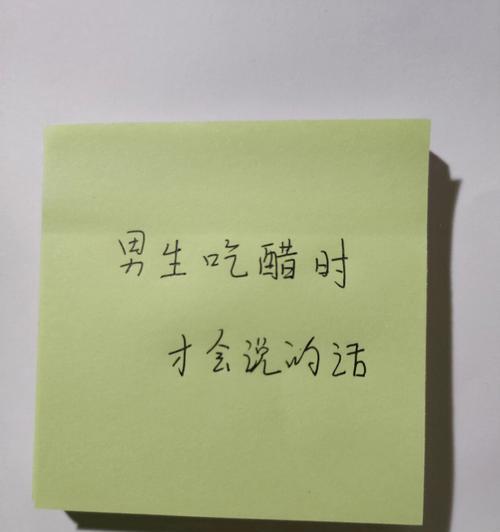 男生吃醋时
才会说的话